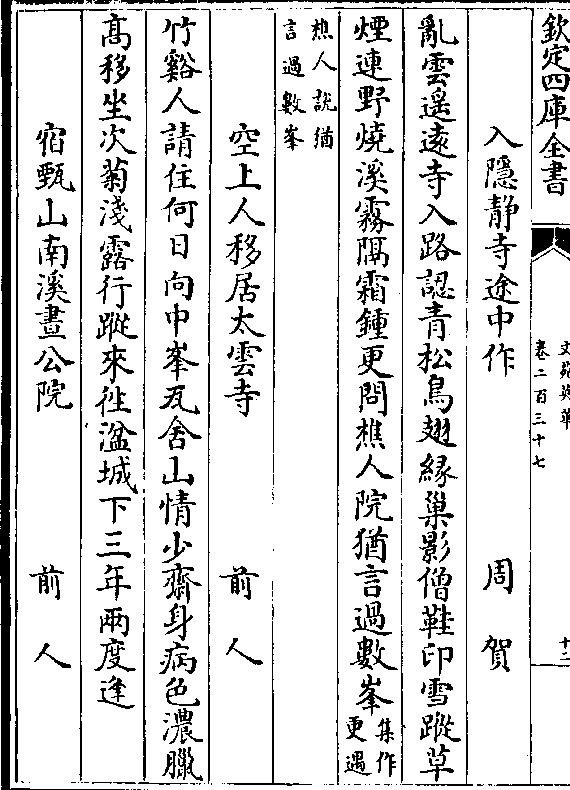 欽定四庫全書
文苑英華
卷二百三十七
十二
入隱靜寺途中作 周賀
亂雲遥遠寺入路認青松鳥翅緣巢影僧鞋印雪蹤草
煙連野燒溪霧隔霜鍾更問樵人院猶言過數峯集作更遇
樵人說猶言過數峯
空上人移居太雲寺 前人
竹谿人請住何日向中峯瓦舍山情少齋身病色濃臘
髙移坐次菊淺露行蹤來徃湓城下三年兩度逢
宿甄山南溪晝公院 前人